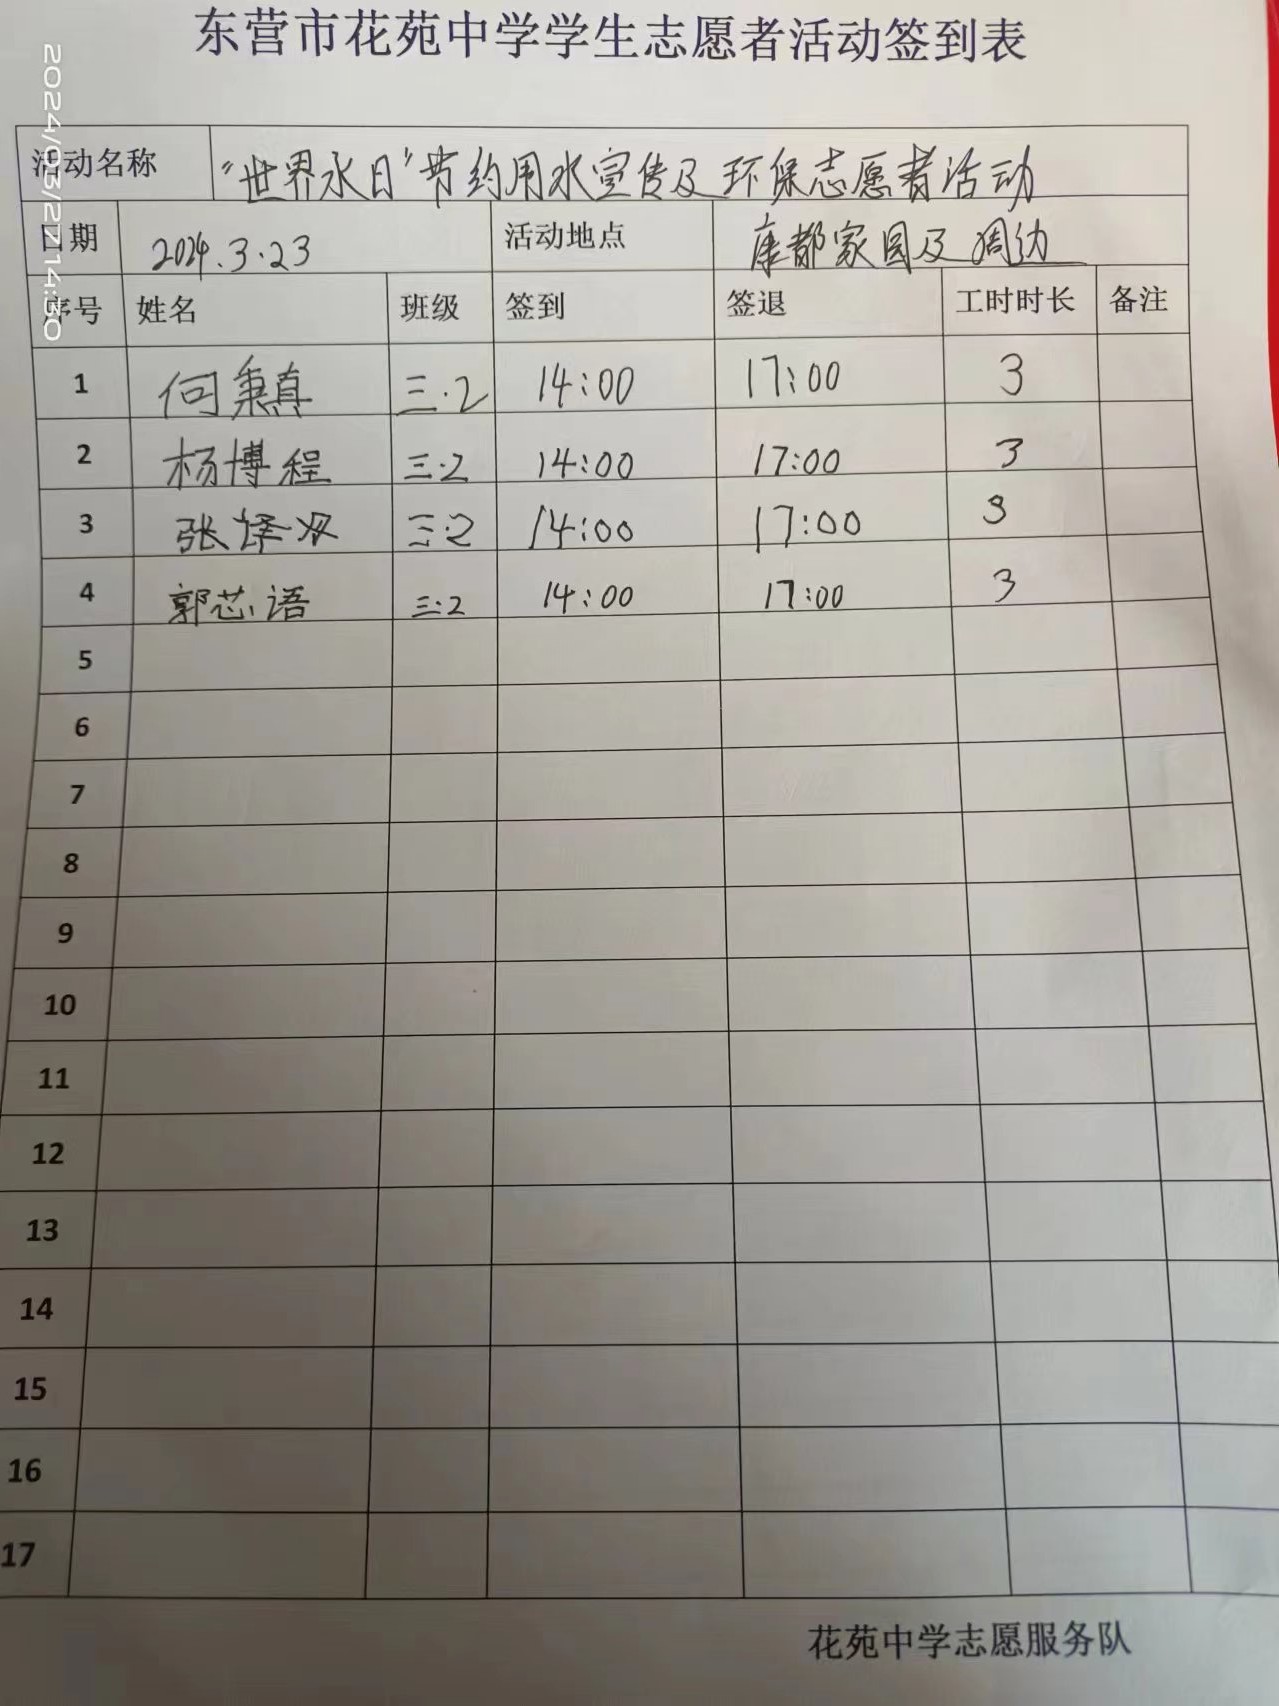 东营市花苑中学学生志愿者活动签到表
2024/03/27 14:50
活动名称 “世界水日”节约用水宣传及环保志愿者活动
日期 2024.3.23 活动地点 康都家园及周边
序号 姓名 班级 签到 签退 工时时长 备注
1 何秉真 三.2 14:00 17:00 3
2 杨博程 三.2 14:00 17:00 3
3 张 三.2 14:00 17:00 3
4 郭芯语 三.2 14:00 17:00 3
5
6
7
8
9
10
11
12
13
14
15
16
17
花苑中学志愿服务队